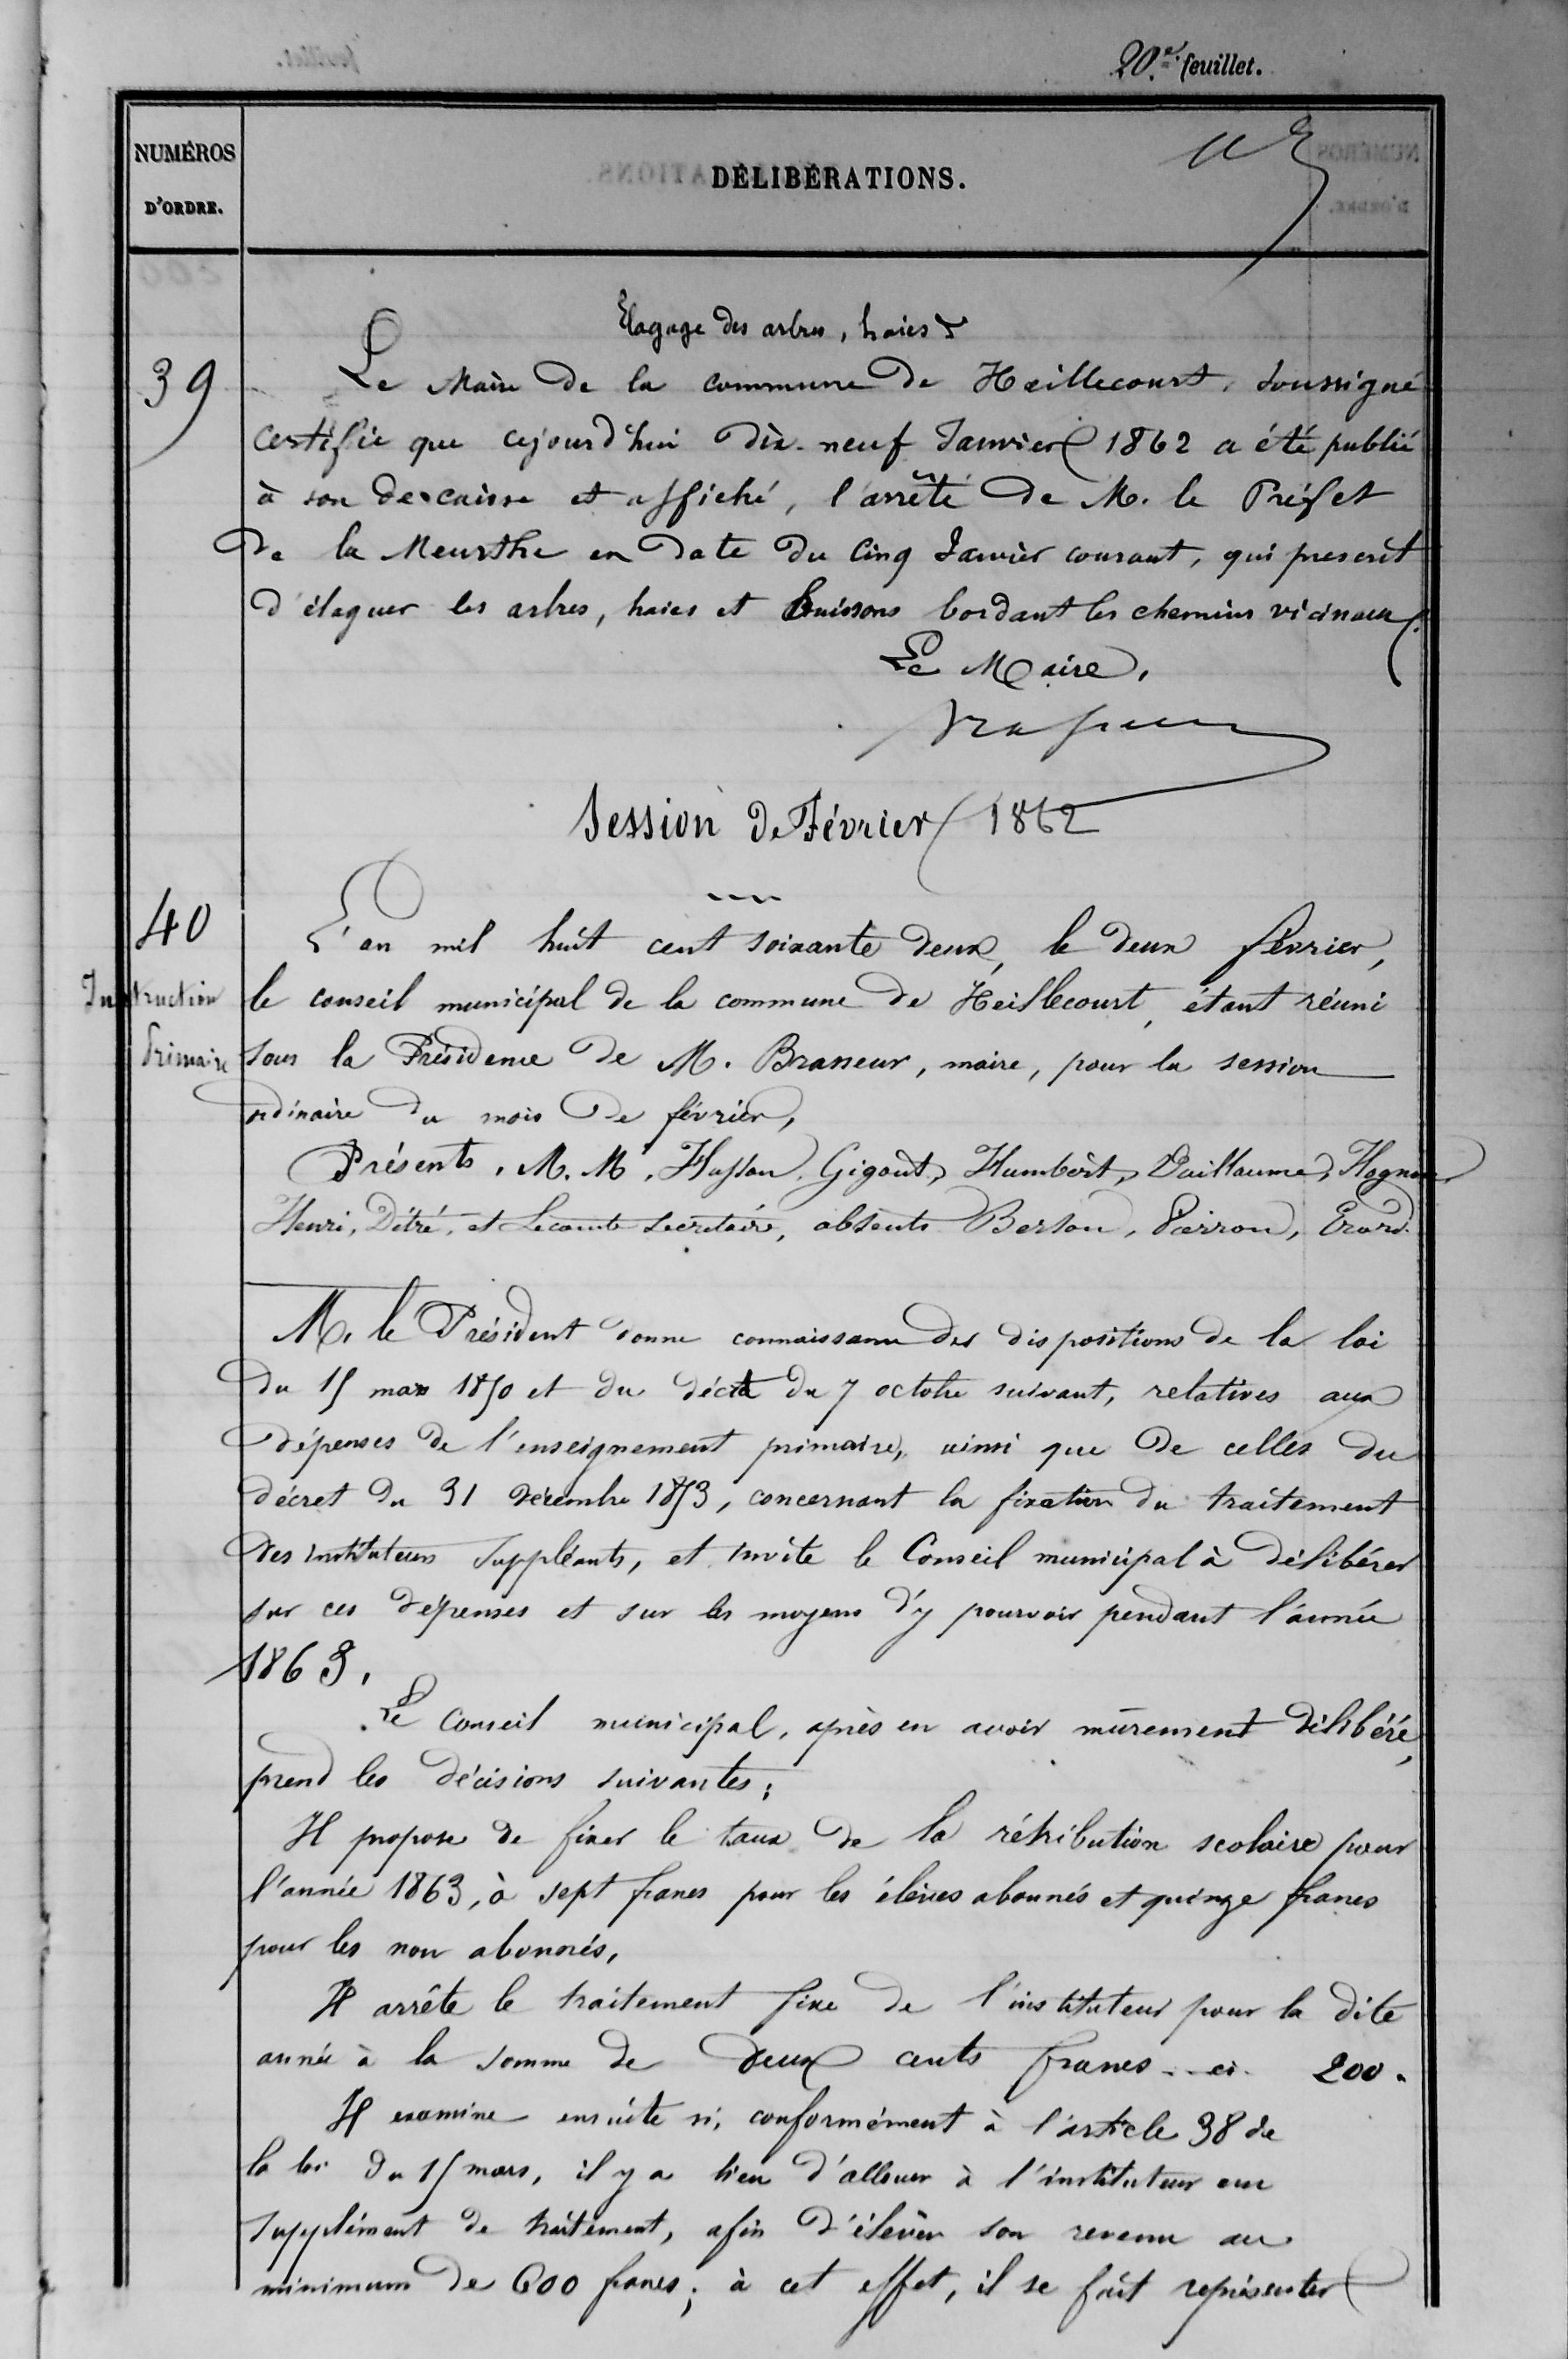 20.e feuillet.
NUMÉROS
D'ORDRE.
DÉLIBÉRATIONS.
Elagage des arbres, haies &
39
Le Maire de la commune de Heillecourt, soussigné
certifie que cejourd'hui dix-neuf Janvier 1862 a été publié
à son de caisse et affiché, l'arrêté de M. le Préfet
de la Meurthe en date du Cinq Janvier courant, qui prescrit
d'élaguer les arbres, haies et buissons bordant les chemins vicinaux.
Le Maire,
Session de Février 1862
40
Instruction
Primaire
L'an mil huit cent soixante deux, le deux février,
le conseil municipal de la commune de Heillecourt, étant réuni
sous la Présidence de M. Brasseur, maire, pour la session
ordinaire du mois de février,
Présents, M. M. Husson, Gigout, Humbert, Vuillaume, Hognon
Henri, Détré, et Lecomte secrétaire, absents Berson, Pierron, Erard.
M. le Président donne connaissance des dispositions de la loi
du 15 mars 1850 et du décret du 7 octobre suivant, relatives aux
dépenses de l'enseignement primaire, ainsi que de celles du
décret du 31 décembre 1853, concernant la fixation du traitement
des instituteurs suppléants, et invite le Conseil municipal à délibérer
sur ces dépenses et sur les moyens d'y pourvoir pendant l'année
1863.
Le Conseil municipal, après en avoir mûrement délibéré,
prend les décisions suivantes:
Il propose de fixer le taux de la rétribution scolaire pour
l'année 1863, à sept francs pour les élèves abonnés et quinze francs
pour les non abonnés.
Il arrête le traitement fixe de l'instituteur pour la dite
année à la somme de deux cents francs - - ci. 200.
Il examine ensuite si, conformément à l'article 38 de
la loi du 15 mars, il y a lieu d'allouer à l'instituteur un
supplément de traitement, afin d'élever son revenu au
minimum de 600 francs; à cet effet, il se fait représenter